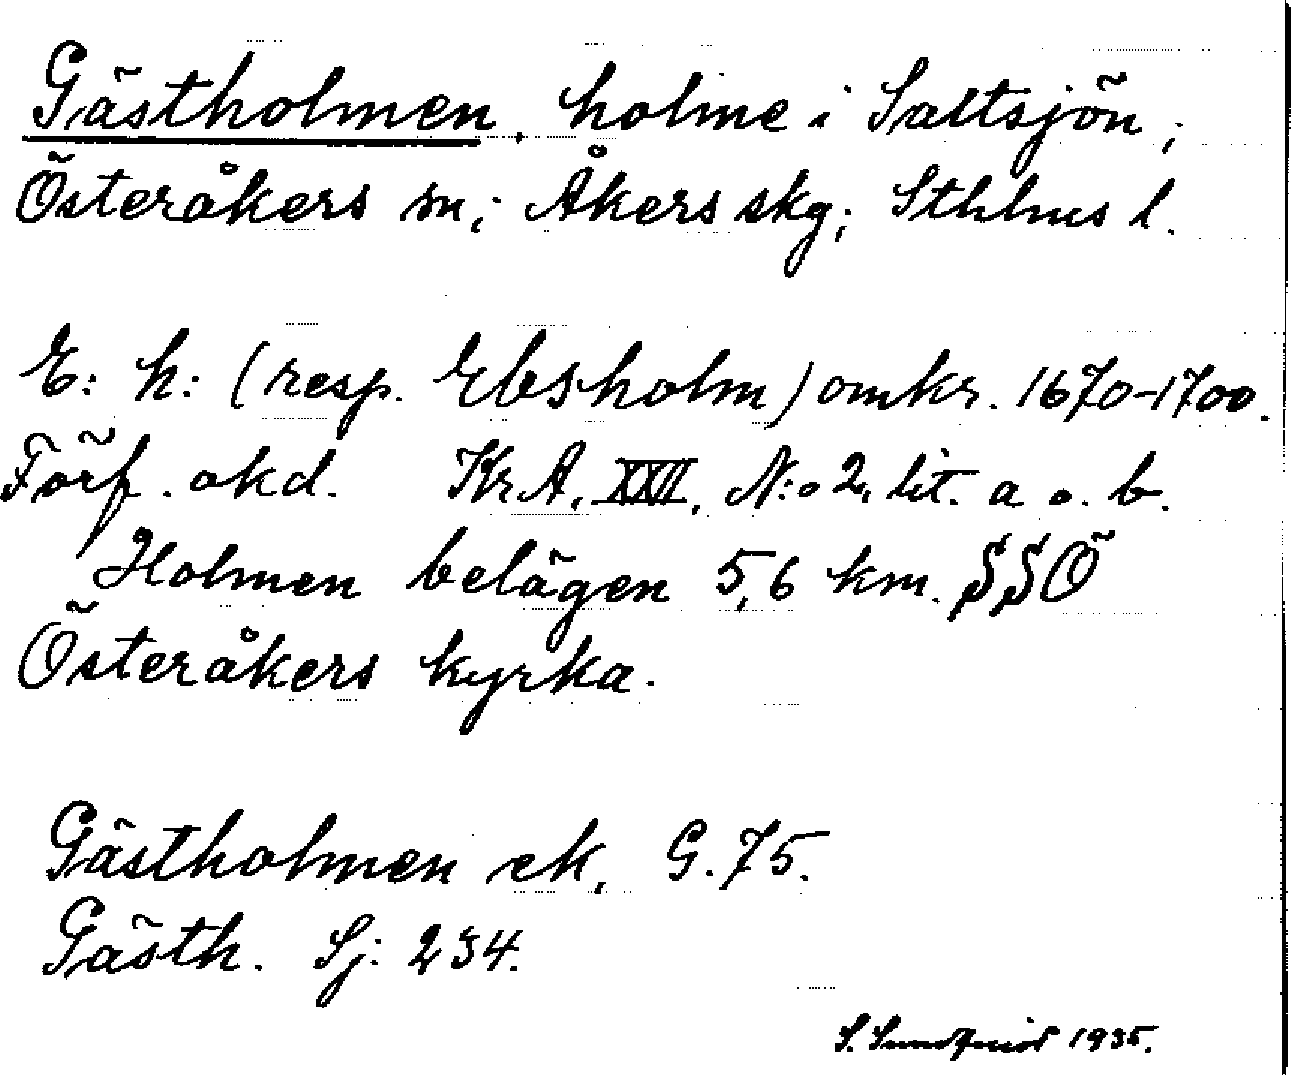 Gästholmen, holme i Saltsjön;
Österåkers sn; Åkers skg; Sthlms l.
E: h: (resp. Ebsholm) omkr. 1670-1700.
Förf. okd. KrA, XXII, N:o 2, lit. a o. b.
Holmen belägen 5,6 km. SSÖ
Österåkers kyrka.
Gästholmen ek, G. 75.
Gästh. Sj: 234.
S. Sundqvist 1935.